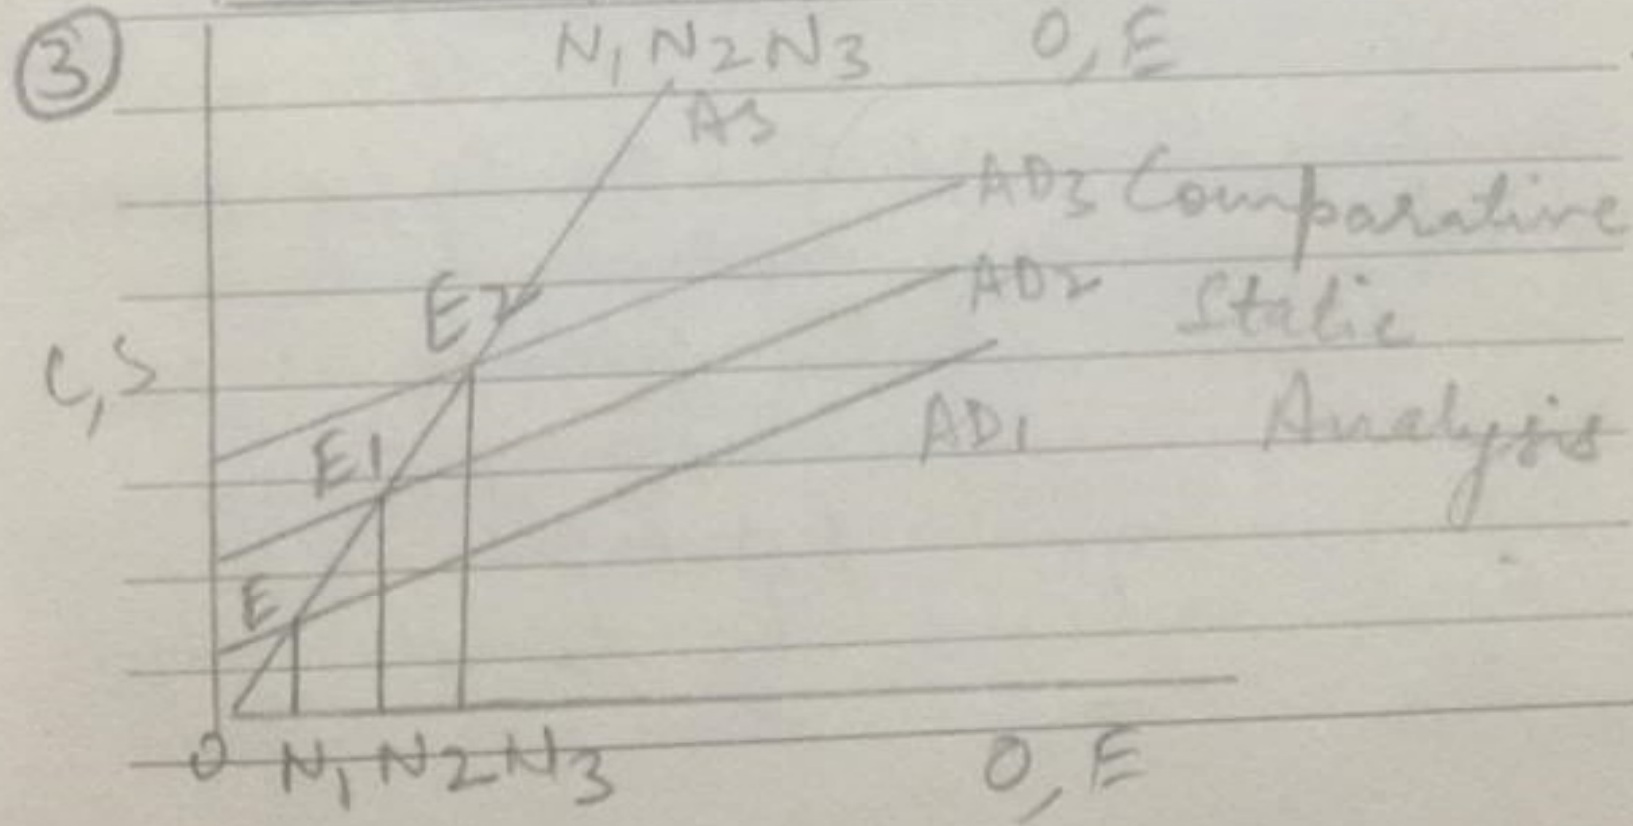 ③
N1 N2 N3 O, E
AS
AD3 Comparative
E2
AD2 Static
C, S
AD1 Analysis
E1
E
O N1 N2 N3 O, E